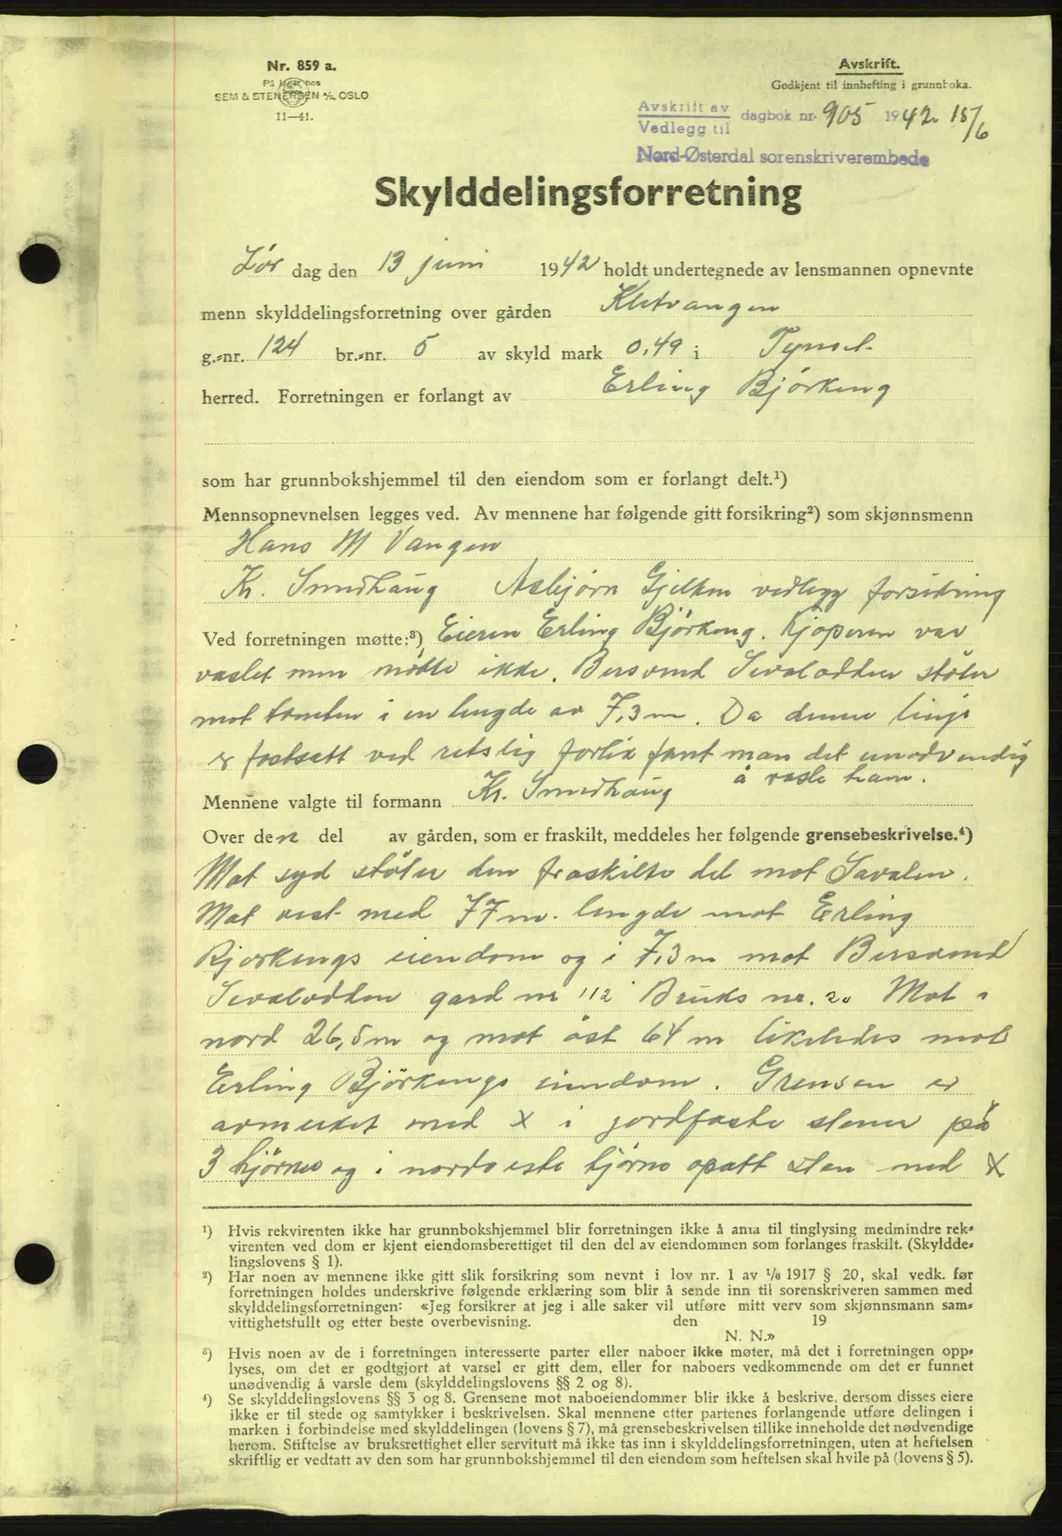 Nr. 859 a.
På lager hos
SEM & STENERSEN A/S, OSLO
11—41.
Avskrift.
Godkjent til innhefting i grunnboka.
Avskrift av
Vedlegg til
dagbok nr. 905 1942 15/6
Nord-Østerdal sorenskriverembede
Skylddelingsforretning
Lør dag den 13 juni 1942 holdt undertegnede av lensmannen opnevnte
menn skylddelingsforretning over gården Kletvangen
g.-nr. 124 br.-nr. 5 av skyld mark 0,49 i Tynset
herred. Forretningen er forlangt av Erling Bjørkeng
som har grunnbokshjemmel til den eiendom som er forlangt delt.¹)
Mennsopnevnelsen legges ved. Av mennene har følgende gitt forsikring²) som skjønnsmenn
Hans M Vangen
Kr. Smedhaug Asbjørn Gjelten vedlegg forsikring
Ved forretningen møtte:³) Eieren Erling Bjørkeng. Kjøperen var
vaslet men møtte ikke. Bersvend Sevalodden støter
mot tomten i en lengde av 7,3 m. Da denne linje
er fastsatt ved retslig forlik fant man det unødvendig
å vasle ham.
Mennene valgte til formann Kr. Smedhaug
Over den del av gården, som er fraskilt, meddeles her følgende grensebeskrivelse.⁴)
Mot syd støter den fraskilte del mot Savalen.
Mot vest med 77 m. lengde mot Erling
Bjørkengs eiendom og i 7,3 m mot Bersvend
Sevalodden gard nr 112 Bruks nr. 20 Mot
nord 26,5 m og mot øst 64 m likeledes mot
Erling Bjørkengs eiendom. Grensen er
avmerket med X i jordfaste stener på
3 hjørner og i nordvestre hjørne opsatt sten med X
¹) Hvis rekvirenten ikke har grunnbokshjemmel blir forretningen ikke å anta til tinglysing medmindre rek-
virenten ved dom er kjent eiendomsberettiget til den del av eiendommen som forlanges fraskilt. (Skyldde-
lingslovens § 1).
²) Har noen av mennene ikke gitt slik forsikring som nevnt i lov nr. 1 av 1/8 1917 § 20, skal vedk. før
forretningen holdes underskrive følgende erklæring som blir å sende inn til sorenskriveren sammen med
skylddelingsforretningen: «Jeg forsikrer at jeg i alle saker vil utføre mitt verv som skjønnsmann sam-
vittighetsfullt og etter beste overbevisning. den 19
N. N.»
³) Hvis noen av de i forretningen interesserte parter eller naboer ikke møter, må det i forretningen opp-
lyses, om det er godtgjort at varsel er gitt dem, eller for naboers vedkommende om det er funnet
unødvendig å varsle dem (skylddelingslovens §§ 2 og 8).
⁴) Se skylddelingslovens §§ 3 og 8. Grensene mot naboeiendommer blir ikke å beskrive, dersom disses eiere
ikke er til stede og samtykker i beskrivelsen. Skal mennene etter partenes forlangende utføre delingen i
marken i forbindelse med skylddelingen (lovens § 7), må grensebeskrivelsen tillike inneholde det nødvendige
herom. Stiftelse av bruksrettighet eller servitutt må ikke tas inn i skylddelingsforretningen, uten at heftelsen
skriftlig er vedtatt av den som har grunnbokshjemmel til den eiendom som heftelsen skal hvile på (lovens § 5).